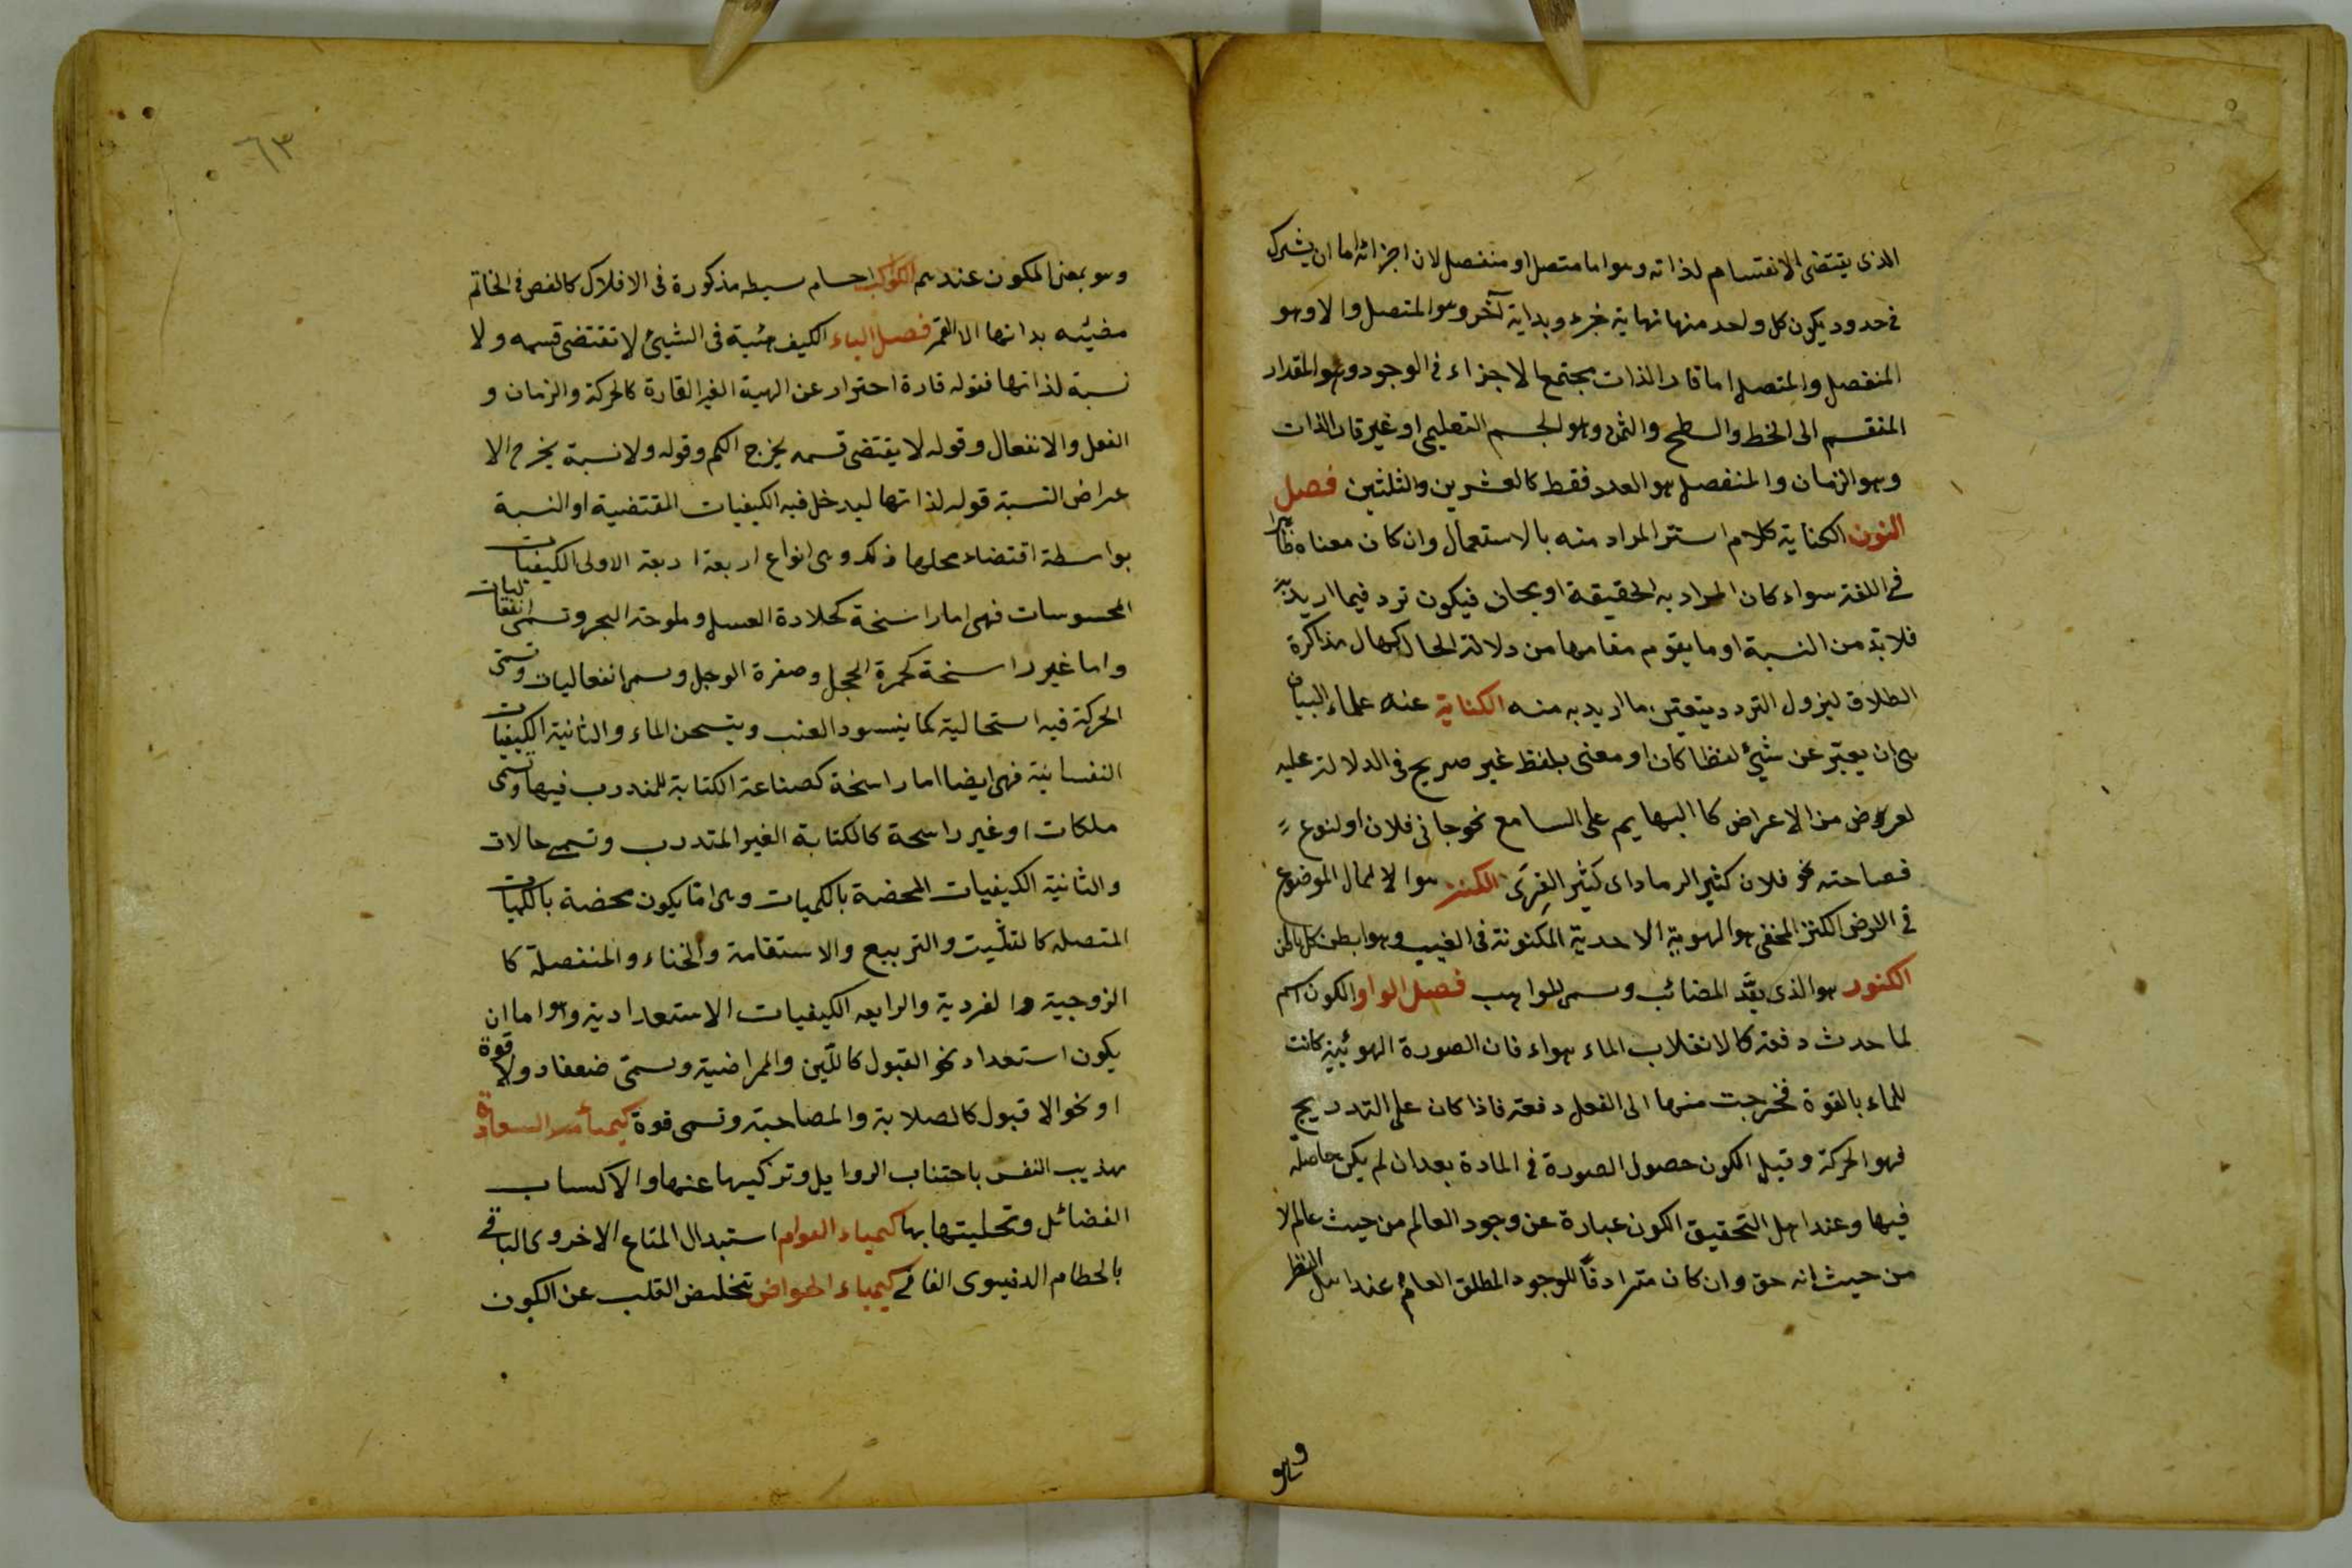 الذى يقتضى الانقسام لذاته وهو اما متصل او منفصل لان اجزائه اما ان يشترك
فى حدود يكون كل واحد منها نهاية جزء وبداية آخر وهو المتصل والا وهو
المنفصل والمتصل اما قار الذات مجتمع الاجزاء فى الوجود وهو المقدار
المنقسم الى الخط والسطح والثمن وهو الجسم التعليمى او غير قار الذات
وهو الزمان والمنفصل هو العدد فقط كالعشرين والثلثين فصل
النون الكناية كلام استتر المراد منه بالاستعمال وان كان معناه ظاهرا
فى اللغة سواء كان المراد به الحقيقة او مجاز فيكون ترد فيما اريد به
فلا بد من النسبة او ما يقوم مقامها من دلالة الحال كحال مذاكرة
الطلاق ليزول التردد ويتعين ما اريد به منه الكناية عنه علماء البيان
هى ان يعبّر عن شيئ لفظا كان او معنى بلفظ غير صريح فى الدلالة عليه
لعروض من الاعراض كالابهام على السامع نحو جانى فلان او لنوع
فصاحته نحو فلان كثير الرماد اى كثير القِرَى الكنز هو الامال الموضوع
فى الارض الكنز المخفى هو الهوية الاحدية المكنونة فى الغيب وهو ابطن كل باطن
الكنود هو الذى يعّد المصائب وسمى المواهب فصل الواو الكون اسم
لما حدث دفعة كالانقلاب الماء هواء فان الصورة الهوئية كانت
للماء بالقوة فخرجت منها الى الفعل دفعة فاذا كان على التدريج
فهو الحركة وقيل الكون حصول الصورة فى المادة بعد ان لم يكن حاصلة
فيها وعند اهل التحقيق الكون عبارة عن وجود العالم من حيث عالم لا
من حيث انه حق وان كان مترادفاً للوجود المطلق العام عند اهل النظر
وهو
٦٣
وهو بمعنى المكون عندهم الكواكب اجسام بسيطه مذكورة فى الافلاك كالفص فى الخاتم
مضيئه بداتها الا القمر فصل الياء الكيف هئية فى الشيئ لا تقتضى قسمه ولا
نسبة لذاتها فقوله قارة احتراز عن الهية الغير القارة كالحركة والزمان و
الفعل والانفعال وقوله لا يقتضى قسمه يخرج الكم وقوله ولا نسبة يخرج الا
عراض النسبة قوله لذاتها ليدخل فيه الكيفيات المقتضية او النسبة
بواسطة اقتضاء محلها ذلك وهى انواع اربعة اربعة الاولى الكيفيات
المحسوسات فهى اما راسخة كحلادة العسل وملوحة البحر وتسمى انفعاليات
واما غير راسخة كحمرة الخجل وصفرة الوجل وسمى انفعاليات وتسمى
الحركة فيه استحالية كما ينسود العنب ويتسخن الماء والثانية الكيفيات
النفسانية فهى ايضا اما راسخة كصناعة الكتابة للمتدرب فيها وتسمى
ملكات او غير راسخة كالكتابة الغير المتدرب وتسمى حالات
والثانية الكيفيات المحضة بالكميات وهى اما يكون محضة بالكميات
المتصله كالتثليث والتربيع والاستقامة والخناء والمنفصلة كا
الزوجية والفردية والرابعه الكيفيات الاستعدادية وهو اما ان
يكون استعداد نحو القبول كاللّين والمراضية وسمى ضعفا ولا قوة
او نحو الا قبول كالصلابة والمصاحبة وتسمى قوة كيمياء السعادة
تهذيب النفس باجتناب الرذايل وتزكيها عنها والاكساب
الفضائل وتحليتها بها كيمياء العوام استبدال المتاع الاخروى الباقى
بالحطام الدنيوى الفانى كيمياء الخواص تخليص القلب عن الكون